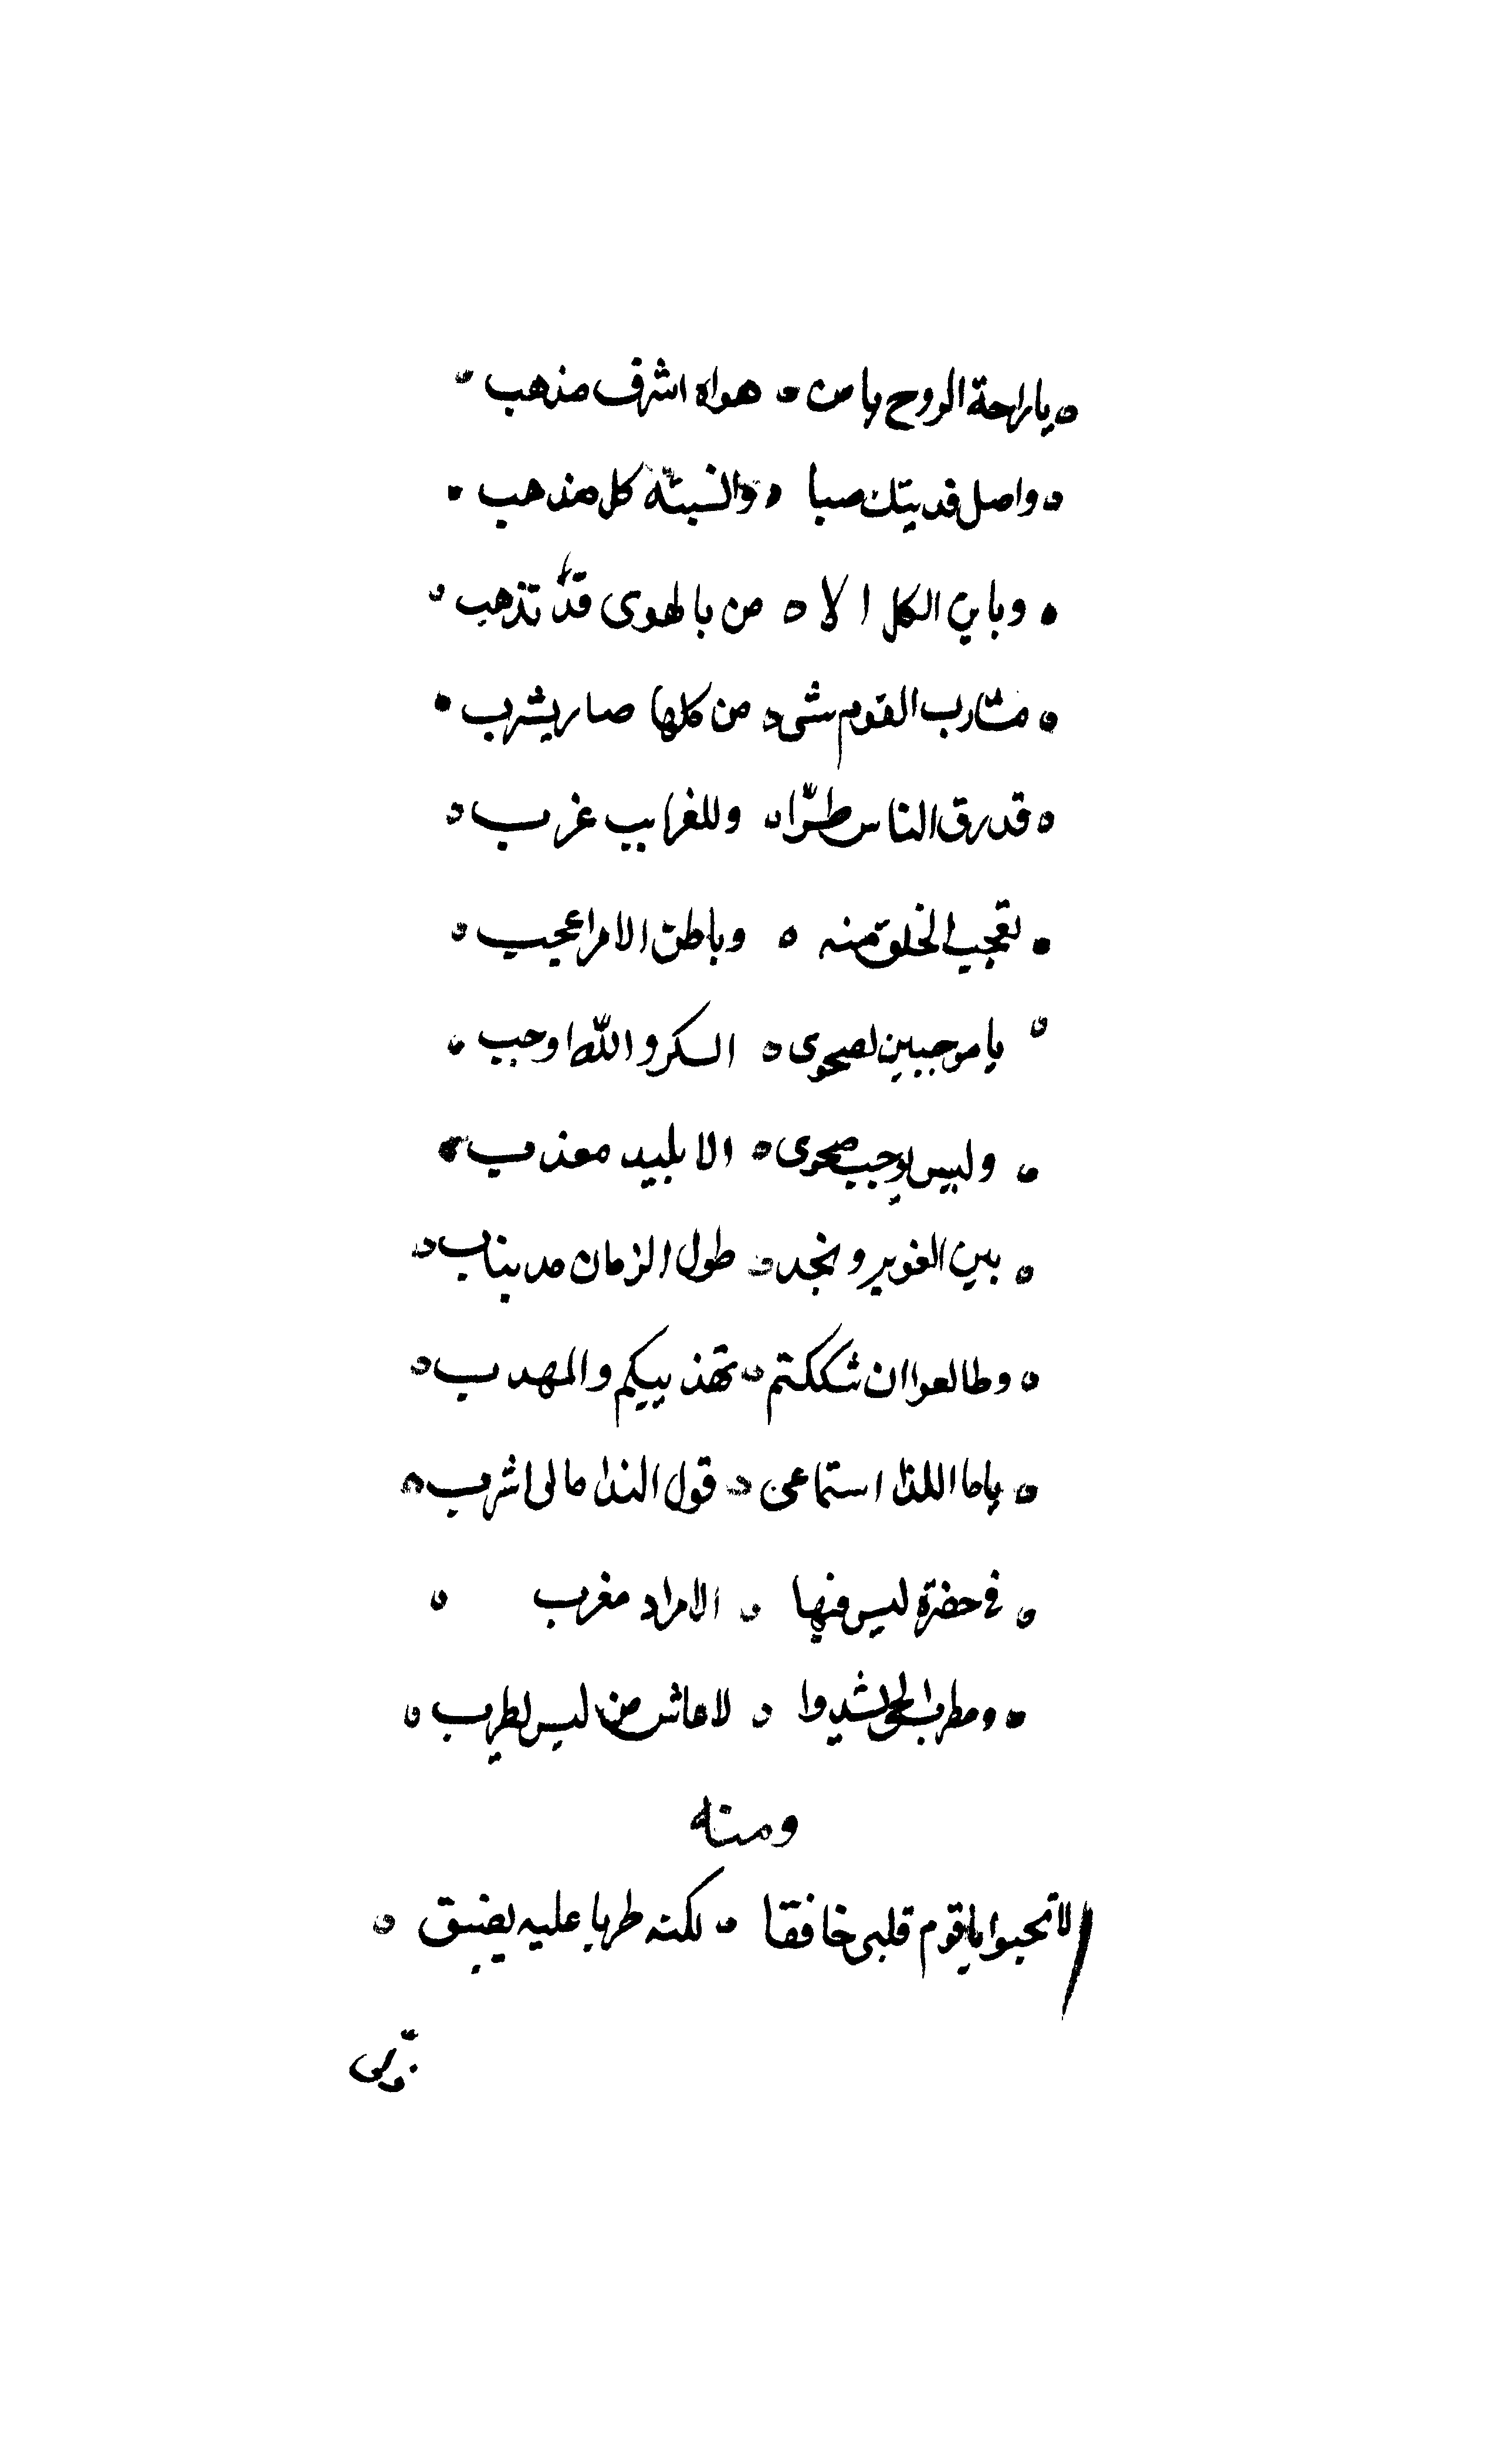 يا راحة الروح يا من هواه اشرف مذهب
واصل فديتك صبا والسبته كل مذهب
وباين الكل الا من بالهوى قد تذهب
مشارب القوم شى من كلها صار يشرب
قد رق الناس طرّا وللغرايب غرب
تعجب الخلق منه وباطن الامر اعجيب
يا موجبين لصحوى السكر والله اوجب
وليس يوجب صحوى الا بليد معذب
بين الغوير ونجد طول الزمان مديناب
وطالعوا ان شككتم تهذيبكم والمهدب
ياما اللذا استماعى قول الندا مالى اشرب
فى حضرة ليس فيها الا مراد مغرب
ومطرب الحى يشدوا لا عاش من ليس يطرب
ومنه
لا تحبوا يا قوم قلبى خافقا لكنه طربا عليه يضيق